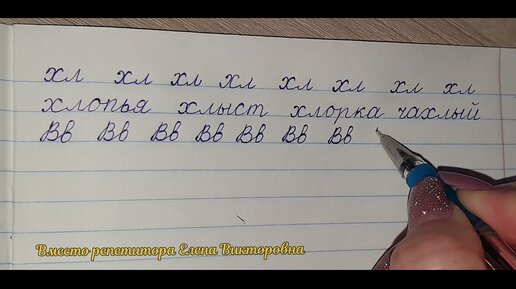 хл хл хл хл хл хл хл хл
хлопья хлыст хлорка чахлый
Вв Вв Вв Вв Вв Вв Вв
Вместо репетитора Елена Викторовна